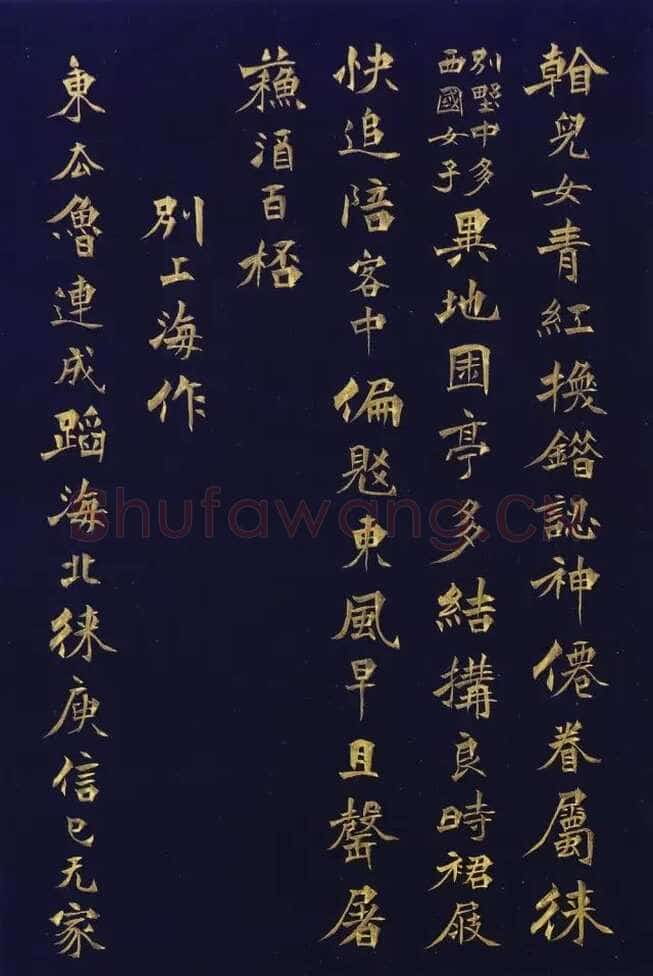 翰兒女青紅換錯認神僊眷屬徠
別墅中多
西國女子
異地園亭多結搆良時裙屐
快追陪客中偏東風早且罄屠
蘓酒百桮
別上海作
東去魯連成蹈海北徠庾信已无家
Shufawang.Cn